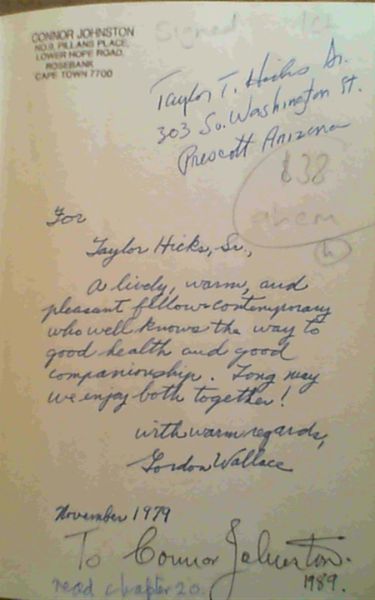 CONNOR JOHNSTON
NO.9, PILLANS PLACE,
LOWER HOPE ROAD,
ROSEBANK
CAPE TOWN 7700
Signed
Taylor T. Hicks Sr.
303 So. Washington St.
Prescott Arizona
$38
For
Taylor Hicks, Sr.,
A lively, warm, and
pleasant fellow-contemporary
who well knows the way to
good health and good
companionship. Long may
we enjoy both together!
with warm regards,
Gordon Wallace
November 1979
To Connor Johnston.
read chapter 20.
1989.